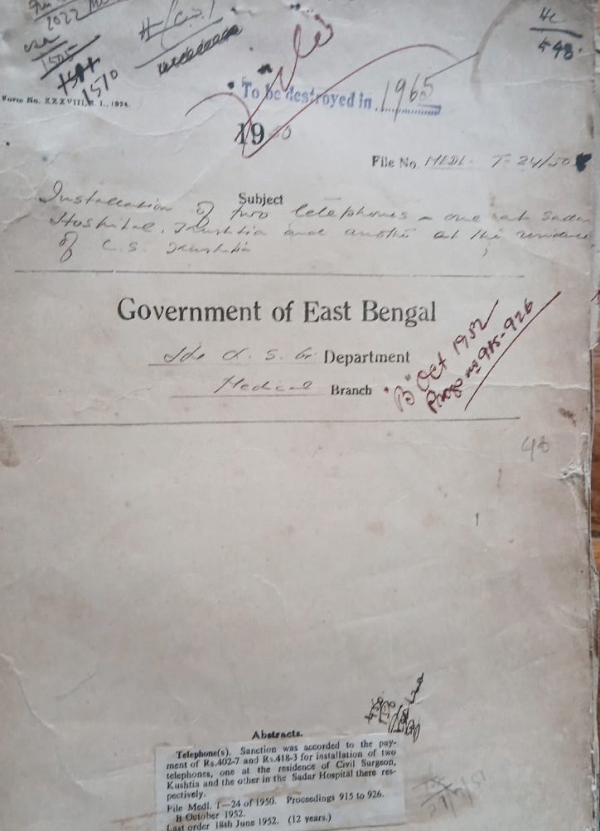 2022
1510
4c
548
To be destroyed in 1965
Form No. XXXVIII, 1., 1924.
1950
File No. MEDL. T-24/50
Subject
Installation of two telephones - one at Sadar
Hospital, Kushtia and another at the residence
of C.S. Kushtia
Government of East Bengal
Department
Medical Branch
"B" Oct 1952
Progs ns 915-926
48
Abstracts.
Telephone(s). Sanction was accorded to the pay-
ment of Rs.402-7 and Rs.418-3 for installation of two
telephones, one at the residence of Civil Surgeon,
Kushtia and the other in the Sadar Hospital there res-
pectively.
File Medl. T—24 of 1950. Proceedings 915 to 926.
B October 1952.
Last order 18th June 1952. (12 years.)